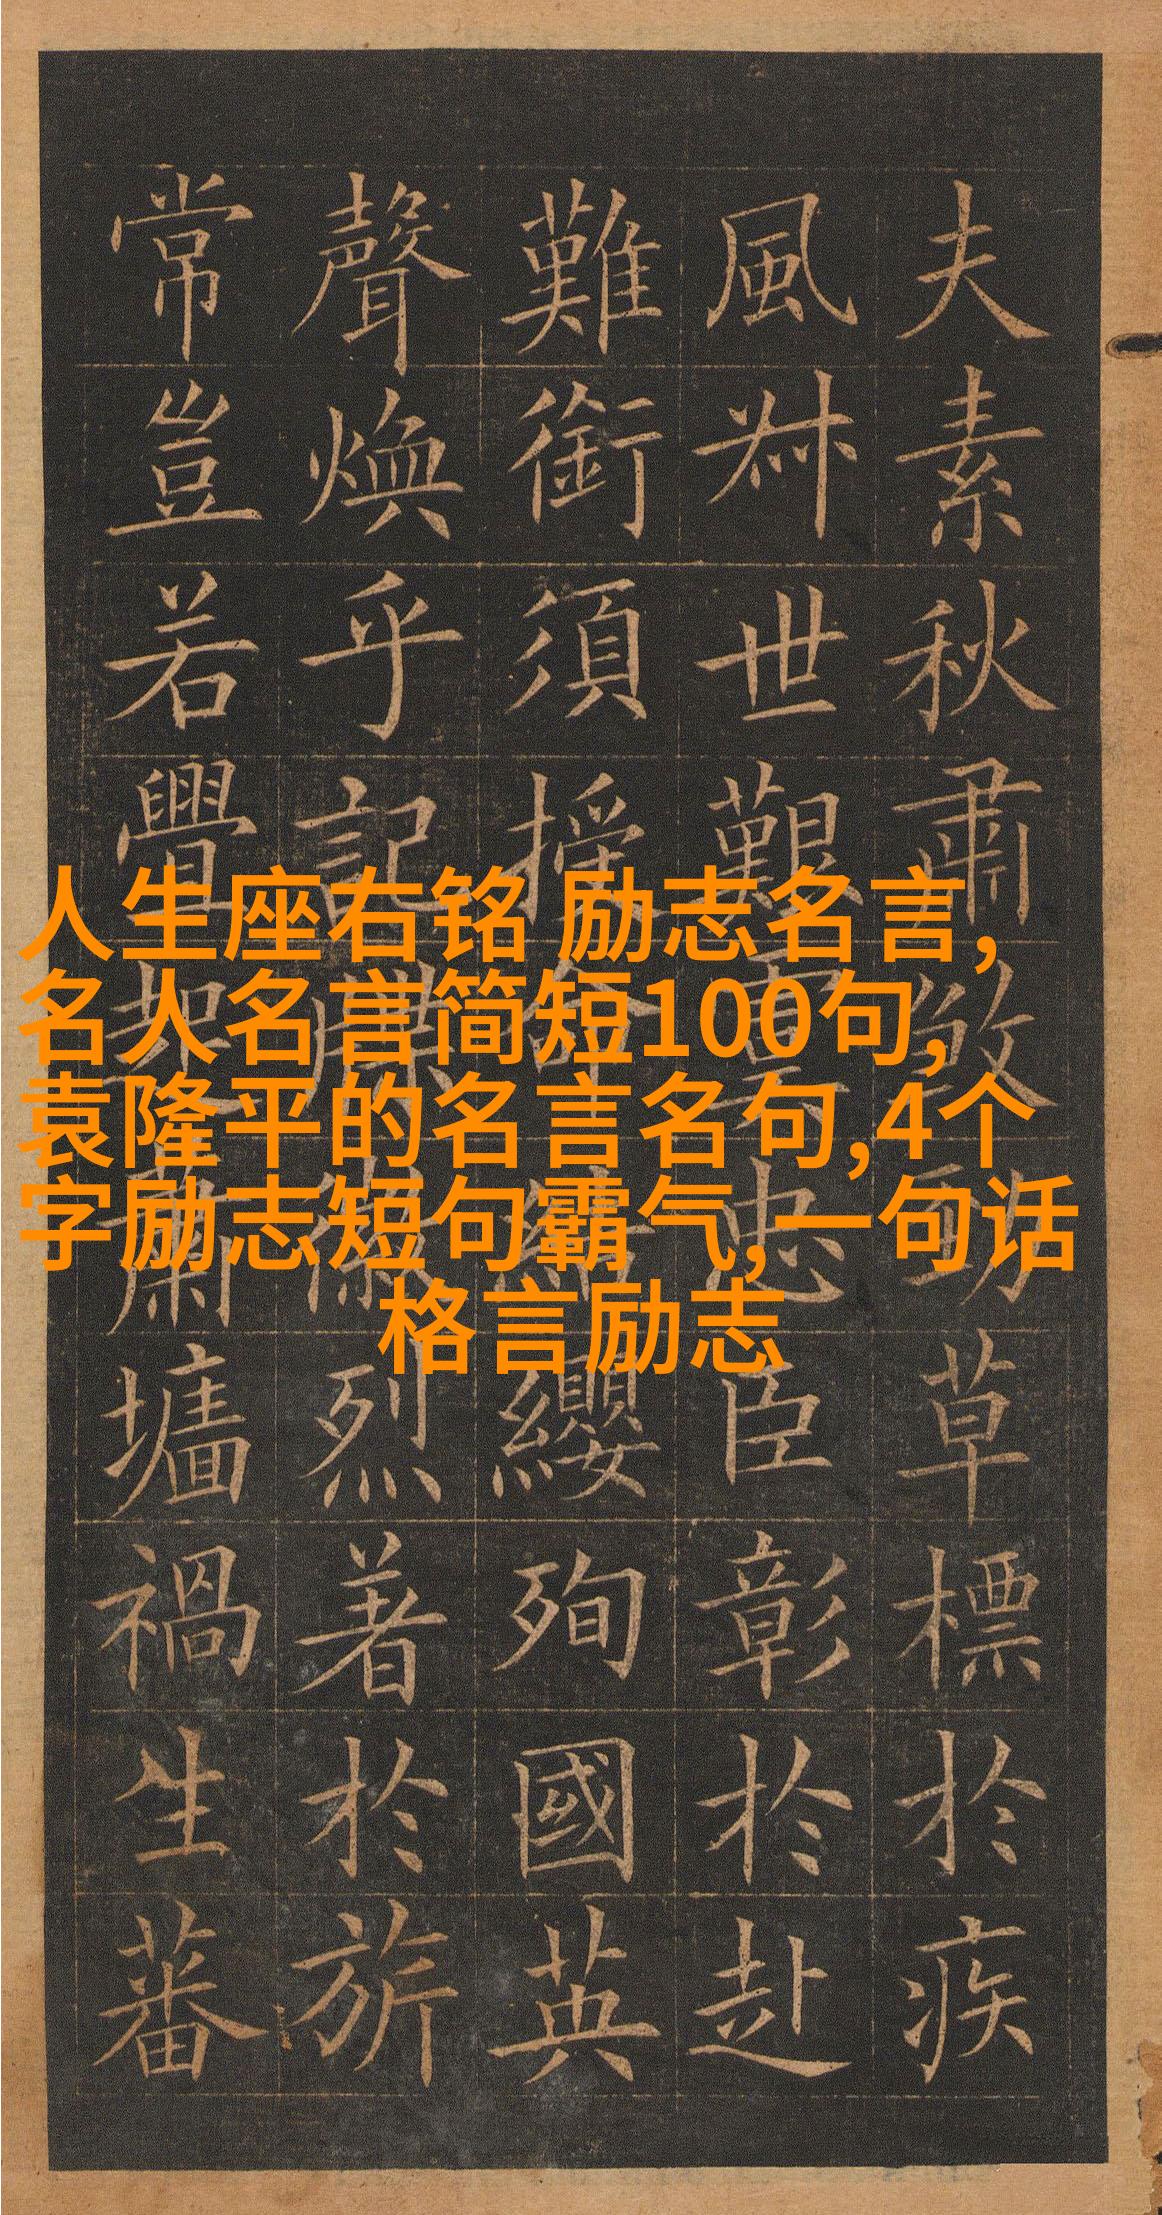 夫素秋肅煞勁草標於疾
風叔世艱虞忠臣彰於赴
難銜須授命結纓殉國英
聲煥乎記牒徽烈著於旂
常豈若釁起蕭墻禍生蕃
人生座右铭 励志名言,
名人名言简短100句,
袁隆平的名言名句,4个
字励志短句霸气,一句话
格言励志